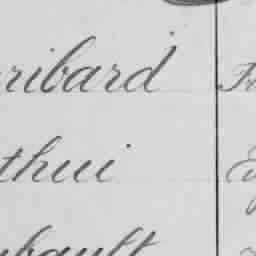 ribard Fr
thui
bault